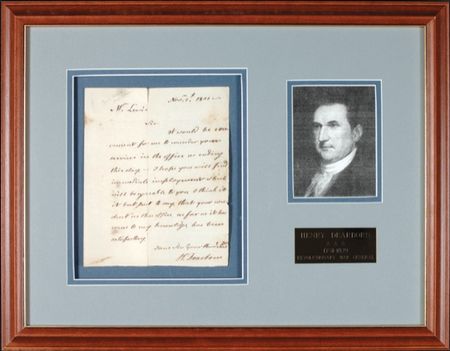 Nov. 1801
Mr. Lewis
Sir
It would be con
venient for me to consider your
services in the office as ending
this day — I hope you will find
immediate employment which
will be agreeable to you I think
it but just to say, that your con
duct in this office as far as it has
come to my knowledge has been
satisfactory
H. Dearborn
HENRY DEARBORN
1751-1829
REVOLUTIONARY WAR GENERAL